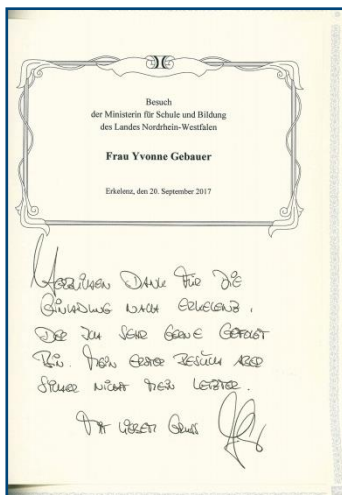 Besuch
der Ministerin für Schule und Bildung
des Landes Nordrhein-Westfalen
Frau Yvonne Gebauer
Erkelenz, den 20. September 2017
Herzlichen Dank für die
Einladung nach Erkelenz,
der ich sehr gerne gefolgt
bin. Mein erster Besuch aber
sicher nicht mein letzter.
Mit lieben Gruß